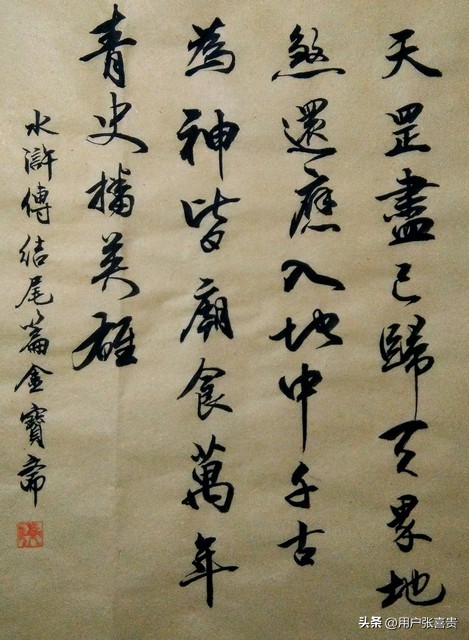 天罡盡已歸天界地
煞還應入地中千古
為神皆廟食萬年
青史播英雄
水滸傳結尾篇金寶齋
头条 @用户张喜贵